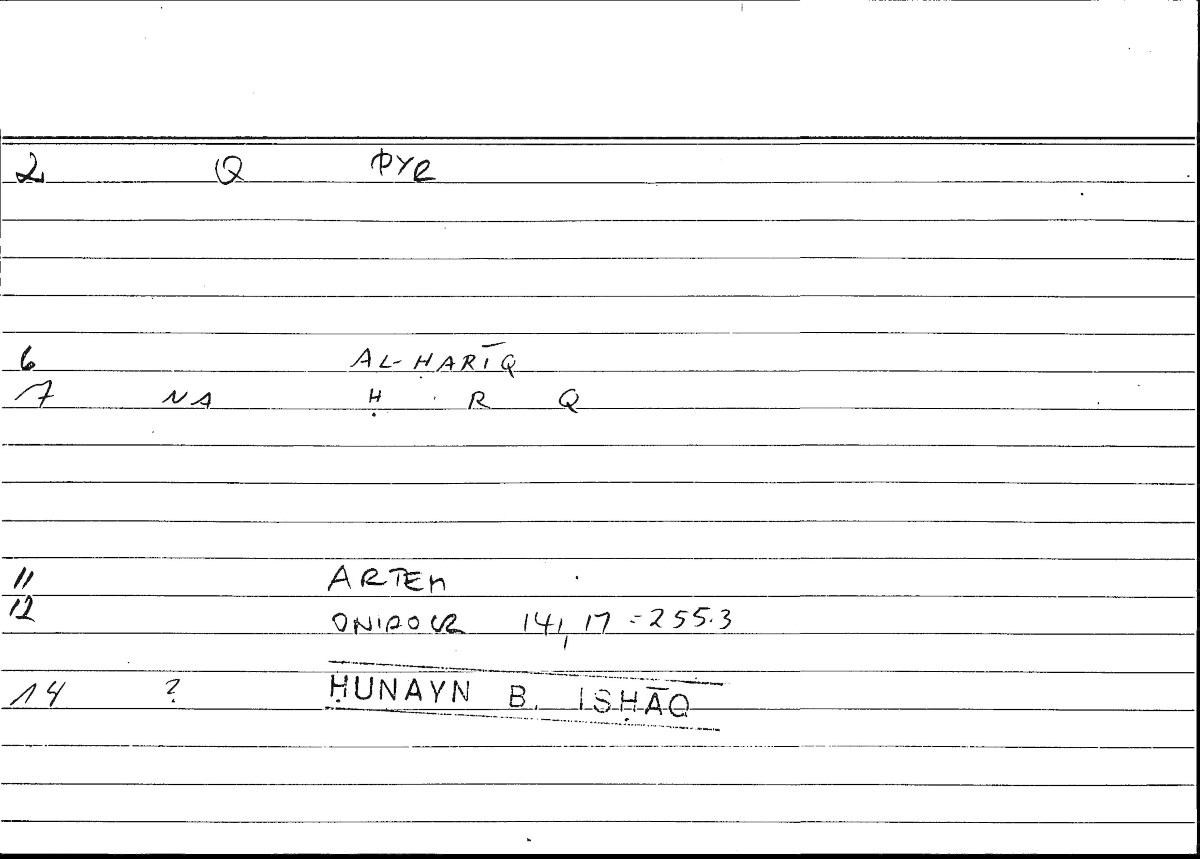 2 Q ΠΥΡ
6 AL-ḤARĪQ
7 NA Ḥ R Q
11 ARTEM
12 ONIROCR 141,17=255.3
14 ? ḤUNAYN B. ISḤĀQ